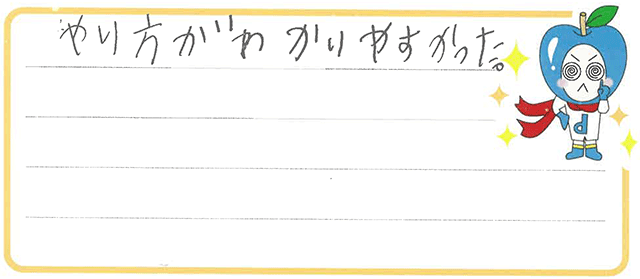 やり方がわかりやすかった。
d